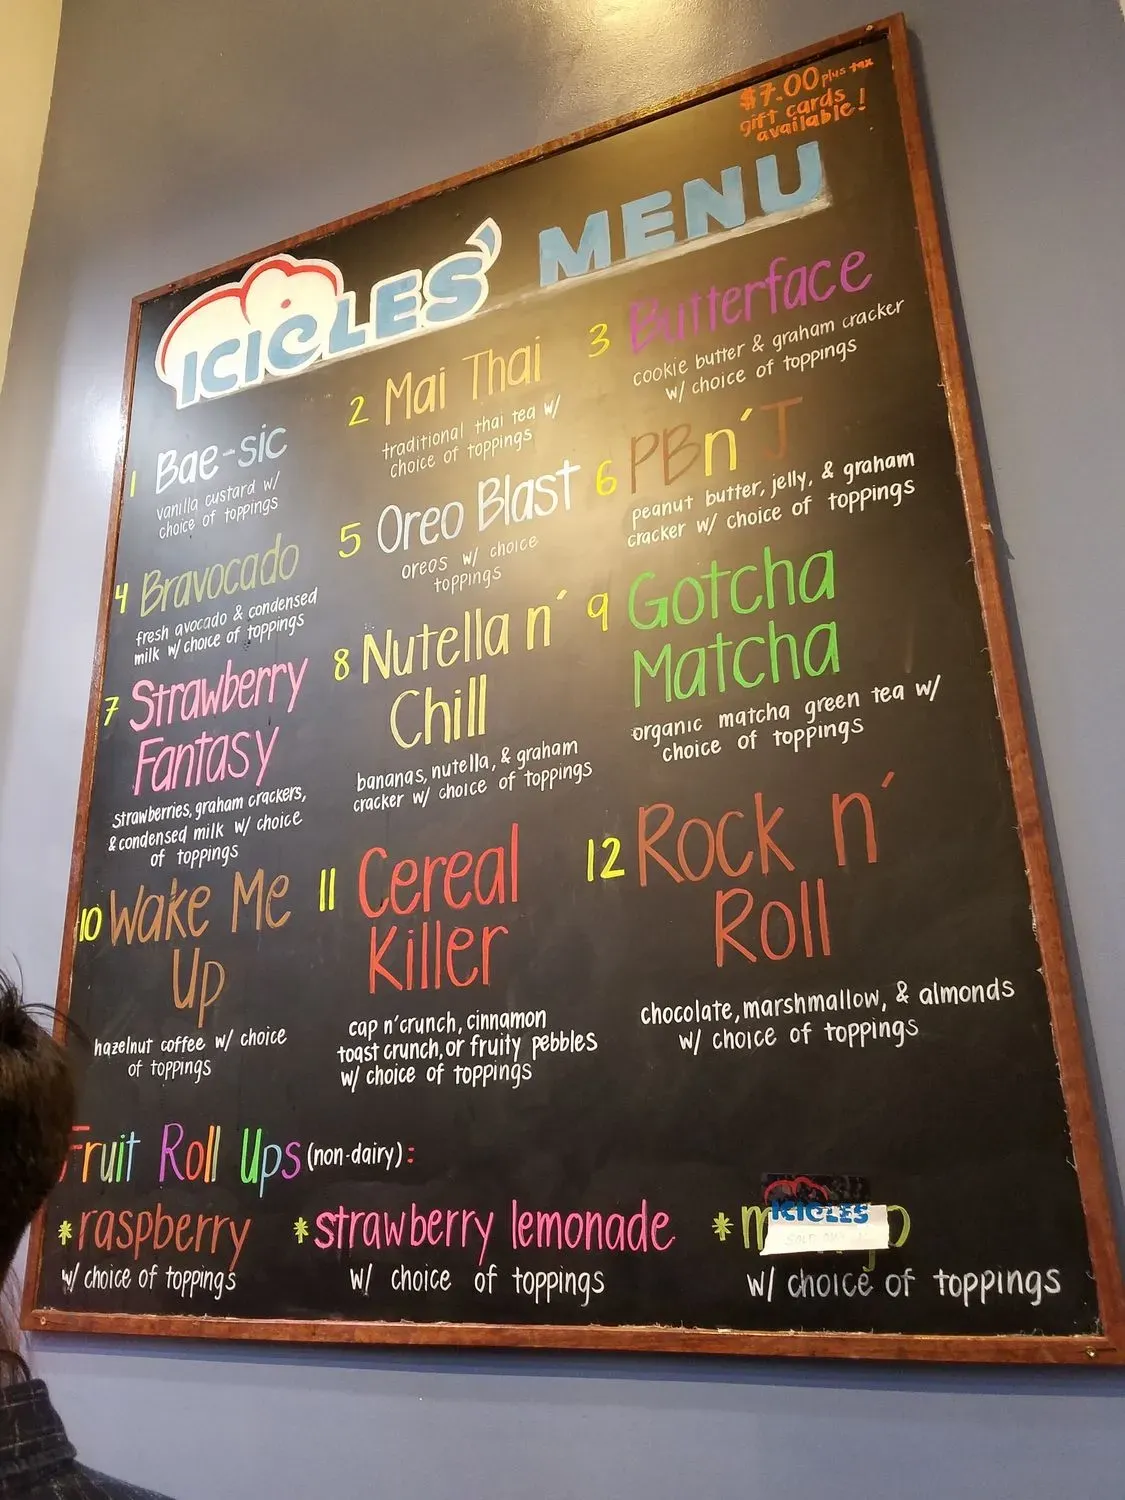 $7.00 plus tax
gift cards
available!
ICICLES' MENU
1 Bae-sic
vanilla custard w/
choice of toppings
2 Mai Thai
traditional thai tea w/
choice of toppings
3 Butterface
cookie butter & graham cracker
w/ choice of toppings
4 Bravocado
fresh avocado & condensed
milk w/ choice of toppings
5 Oreo Blast
oreos w/ choice
toppings
6 PBn'J
peanut butter, jelly, & graham
cracker w/ choice of toppings
7 Strawberry
Fantasy
strawberries, graham crackers,
& condensed milk w/ choice
of toppings
8 Nutella n'
Chill
bananas, nutella, & graham
cracker w/ choice of toppings
9 Gotcha
Matcha
organic matcha green tea w/
choice of toppings
10 Wake Me
Up
hazelnut coffee w/ choice
of toppings
11 Cereal
Killer
cap n'crunch, cinnamon
toast crunch, or fruity pebbles
w/ choice of toppings
12 Rock n'
Roll
chocolate, marshmallow, & almonds
w/ choice of toppings
Fruit Roll Ups (non-dairy):
*raspberry
w/ choice of toppings
*strawberry lemonade
w/ choice of toppings
*
ICICLES
w/ choice of toppings